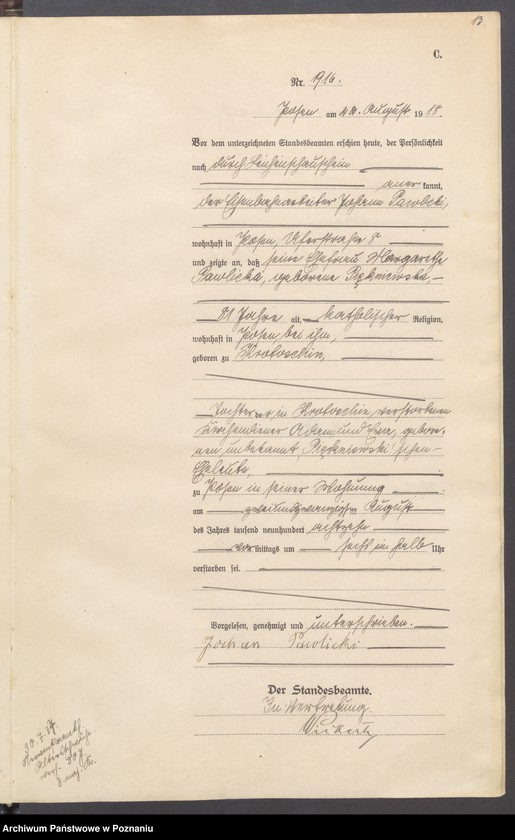 13.
C.
Nr. 916.
Posen am 22. August 1918.
Vor dem unterzeichneten Standesbeamten erschien heute, der Persönlichkeit
nach durch Leichenschauschein
aner kannt,
der Eisenbahnarbeiter Johann Pawlicki,
wohnhaft in Posen, Uferstraße 8
und zeigte an, daß seine Ehefrau Margarethe
Pawlicka, geborene
81 Jahre alt, katholischer Religion,
wohnhaft in Posen, bei ihm,
geboren zu Krotoschin,
Tochter der in Krotoschin verstorbenen
Kirchendiener Adam und Eva, gebore-
nen unbekannt, schen
Eheleute,
zu Posen in seiner Wohnung
am zweiundzwanzigsten August
des Jahres tausend neunhundert achtzehn
vor mittags um sechs ein halb Uhr
verstorben sei.
Vorgelesen, genehmigt und unterschrieben.
Johan Pawlicki
Der Standesbeamte.
In Vertretung.
30. 7.
Archiwum Państwowe w Poznaniu